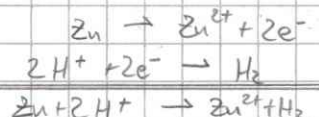 Zn → Zn²⁺ + 2e⁻
2H⁺ + 2e⁻ → H₂
Zn + 2H⁺ → Zn²⁺ + H₂